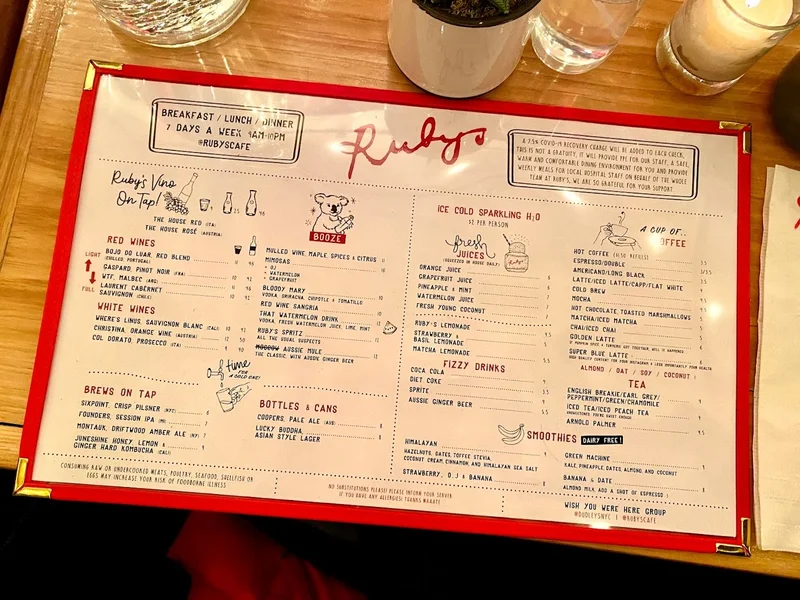 BREAKFAST / LUNCH / DINNER
7 DAYS A WEEK 9AM-10PM
@RUBYSCAFE
Rubys
A 7.5% COVID-19 RECOVERY CHARGE WILL BE ADDED TO EACH CHECK,
THIS IS NOT A GRATUITY, IT WILL PROVIDE PPE FOR OUR STAFF, A SAFE,
WARM AND COMFORTABLE DINING ENVIRONMENT FOR YOU AND PROVIDE
WEEKLY MEALS FOR LOCAL HOSPITAL STAFF ON BEHALF OF THE WHOLE
TEAM AT RUBY'S, WE ARE SO GRATEFUL FOR YOUR SUPPORT
Ruby's Vino
On Tap!
THE HOUSE RED (ITALY)
THE HOUSE ROSÉ (AUSTRIA)
RED WINES
LIGHT
FULL
BOJO DO LUAR, RED BLEND
(CHILLED, PORTUGAL)
GASPARD, PINOT NOIR (FRA)
WTF, MALBEC (ARG)
LAURENT CABERNET
SAUVIGNON (CHILE)
WHITE WINES
WHERE'S LINUS, SAUVIGNON BLANC (CALI)
CHRISTINA, ORANGE WINE (AUSTRIA)
COL DORATO, PROSECCO (ITA)
time
FOR
A COLD ONE!
BREWS ON TAP
SIXPOINT, CRISP PILSNER (NYC)
FOUNDERS, SESSION IPA (MI)
MONTAUK, DRIFTWOOD AMBER ALE (NY)
JUNESHINE HONEY, LEMON &
GINGER HARD KOMBUCHA (CALI)
BOOZE
MULLED WINE, MAPLE, SPICES & CITRUS
MIMOSAS
• OJ
• WATERMELON
• GRAPEFRUIT
BLOODY MARY
VODKA, SRIRACHA, CHIPOTLE & TOMATILLO
RED WINE SANGRIA
THAT WATERMELON DRINK
VODKA, FRESH WATERMELON JUICE, LIME, MINT
RUBY'S SPRITZ
ALL THE USUAL SUSPECTS
MOSCOW AUSSIE MULE
THE CLASSIC, WITH AUSSIE GINGER BEER
BOTTLES & CANS
COOPERS, PALE ALE (AUS)
LUCKY BUDDHA,
ASIAN STYLE LAGER
ICE COLD SPARKLING H2O
PER PERSON
fresh
JUICES
(SQUEEZED IN HOUSE DAILY)
ORANGE JUICE
GRAPEFRUIT JUICE
PINEAPPLE & MINT
WATERMELON JUICE
FRESH YOUNG COCONUT
RUBY'S LEMONADE
STRAWBERRY &
BASIL LEMONADE
MATCHA LEMONADE
FIZZY DRINKS
COCA COLA
DIET COKE
SPRITE
AUSSIE GINGER BEER
A CUP OF..
COFFEE
HOT COFFEE (ALSO REFILLS)
ESPRESSO/DOUBLE
AMERICANO/LONG BLACK
LATTE/ICED LATTE/CAPP/FLAT WHITE
COLD BREW
MOCHA
HOT CHOCOLATE TOASTED MARSHMALLOWS
MATCHA/ICED MATCHA
CHAI/ICED CHAI
GOLDEN LATTE
SUPER BLUE LATTE
ALMOND / OAT / SOY / COCONUT
TEA
ENGLISH BREAKIE/EARL GREY/
PEPPERMINT/GREEN/CHAMOMILE
ICED TEA/ICED PEACH TEA
ARNOLD PALMER
SMOOTHIES DAIRY FREE!
HIMALAYAN
HAZELNUTS, DATES, TOFFEE STEVIA,
COCONUT CREAM, CINNAMON, AND HIMALAYAN SEA SALT
STRAWBERRY, O.J & BANANA
GREEN MACHINE
KALE, PINEAPPLE, DATES, ALMOND, AND COCONUT
BANANA & DATE
ALMOND MILK, ADD A SHOT OF ESPRESSO
CONSUMING RAW OR UNDERCOOKED MEATS, POULTRY, SEAFOOD, SHELLFISH OR
EGGS MAY INCREASE YOUR RISK OF FOODBORNE ILLNESS
NO SUBSTITUTIONS PLEASE! PLEASE INFORM YOUR SERVER
IF YOU HAVE ANY ALLERGIES! THANKS MAAATE
WISH YOU WERE HERE GROUP
@DUDLEYSNYC | @RUBYSCAFE